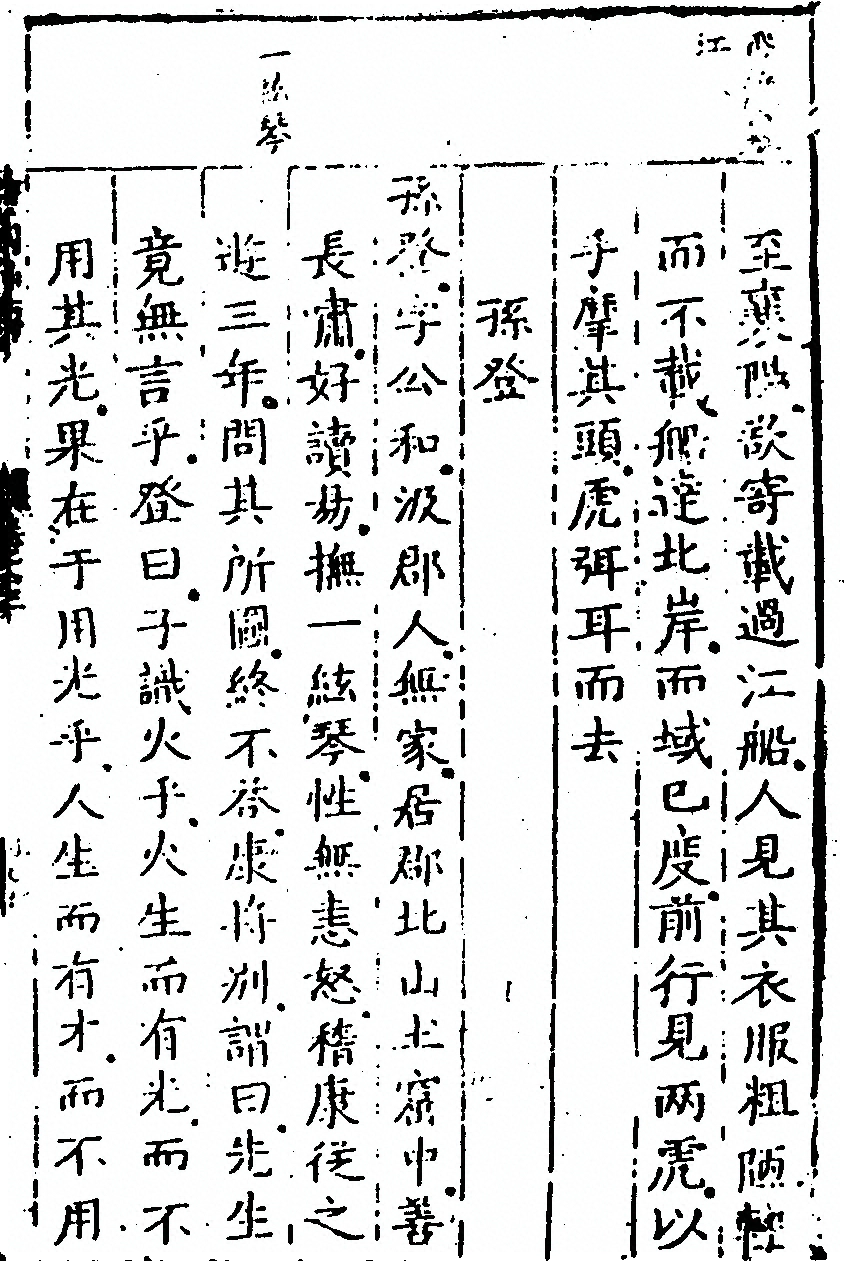 江
一絃琴
至襄陽欲寄載過江船人見其衣服粗陋輕
而不載船達北岸而域已度前行見两虎以
手摩其頭虎弭耳而去
孫登
孫登字公和汲郡人無家居郡北山土窟中善
長嘯好讀易撫一絃琴性無恚怒嵇康從之
遊三年問其所圖終不答康將別謂曰先生
竟無言乎登曰子識火乎火生而有光而不
用其光果在于用光乎人生而有才而不用